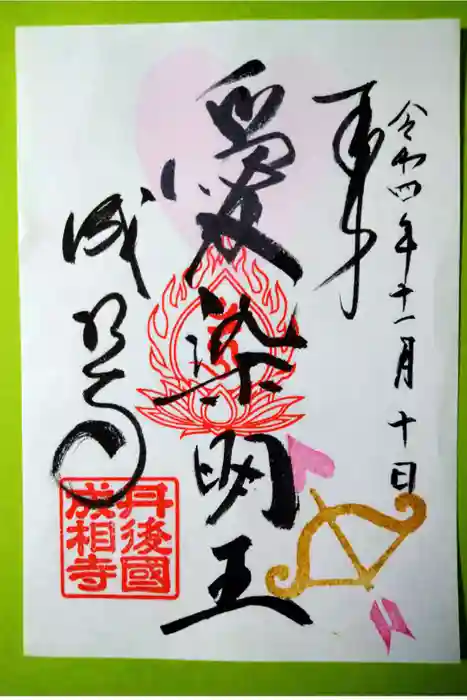 令和四年十一月十日
愛染明王
成相寺
丹後國
成相寺